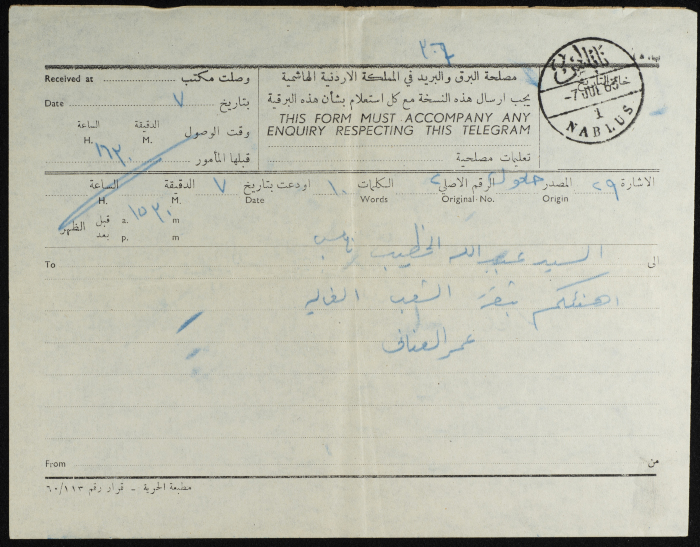 ٣٠٦
Received at وصلت مكتب
Date ٧ بتاريخ
H. الساعة M. الدقيقة
١٦٣٠ وقت الوصول
قبلها المأمور
مصلحة البرق والبريد في المملكة الاردنية الهاشمية
يجب ارسال هذه النسخة مع كل استعلام بشأن هذه البرقية
THIS FORM MUST ACCOMPANY ANY
ENQUIRY RESPECTING THIS TELEGRAM
تعليمات مصلحية
خاتم التاريخ
-7 JUL 63
1
NABLUS
الاشارة ٢٩ المصدر Origin الرقم الاصلي Original-No. ٢ الكلمات Words ١٠ اودعت بتاريخ Date ٧ الدقيقة M. الساعة H.
١٥٣٠ a. m قبل الظهر
p. m بعد
To السيد عبد الله الخطيب نابلس الى
اهنئكم بثقة الشعب الغاليه
عمر العناني
From من
مطبعة الحرية - قرار رقم ٦٠/١١٣